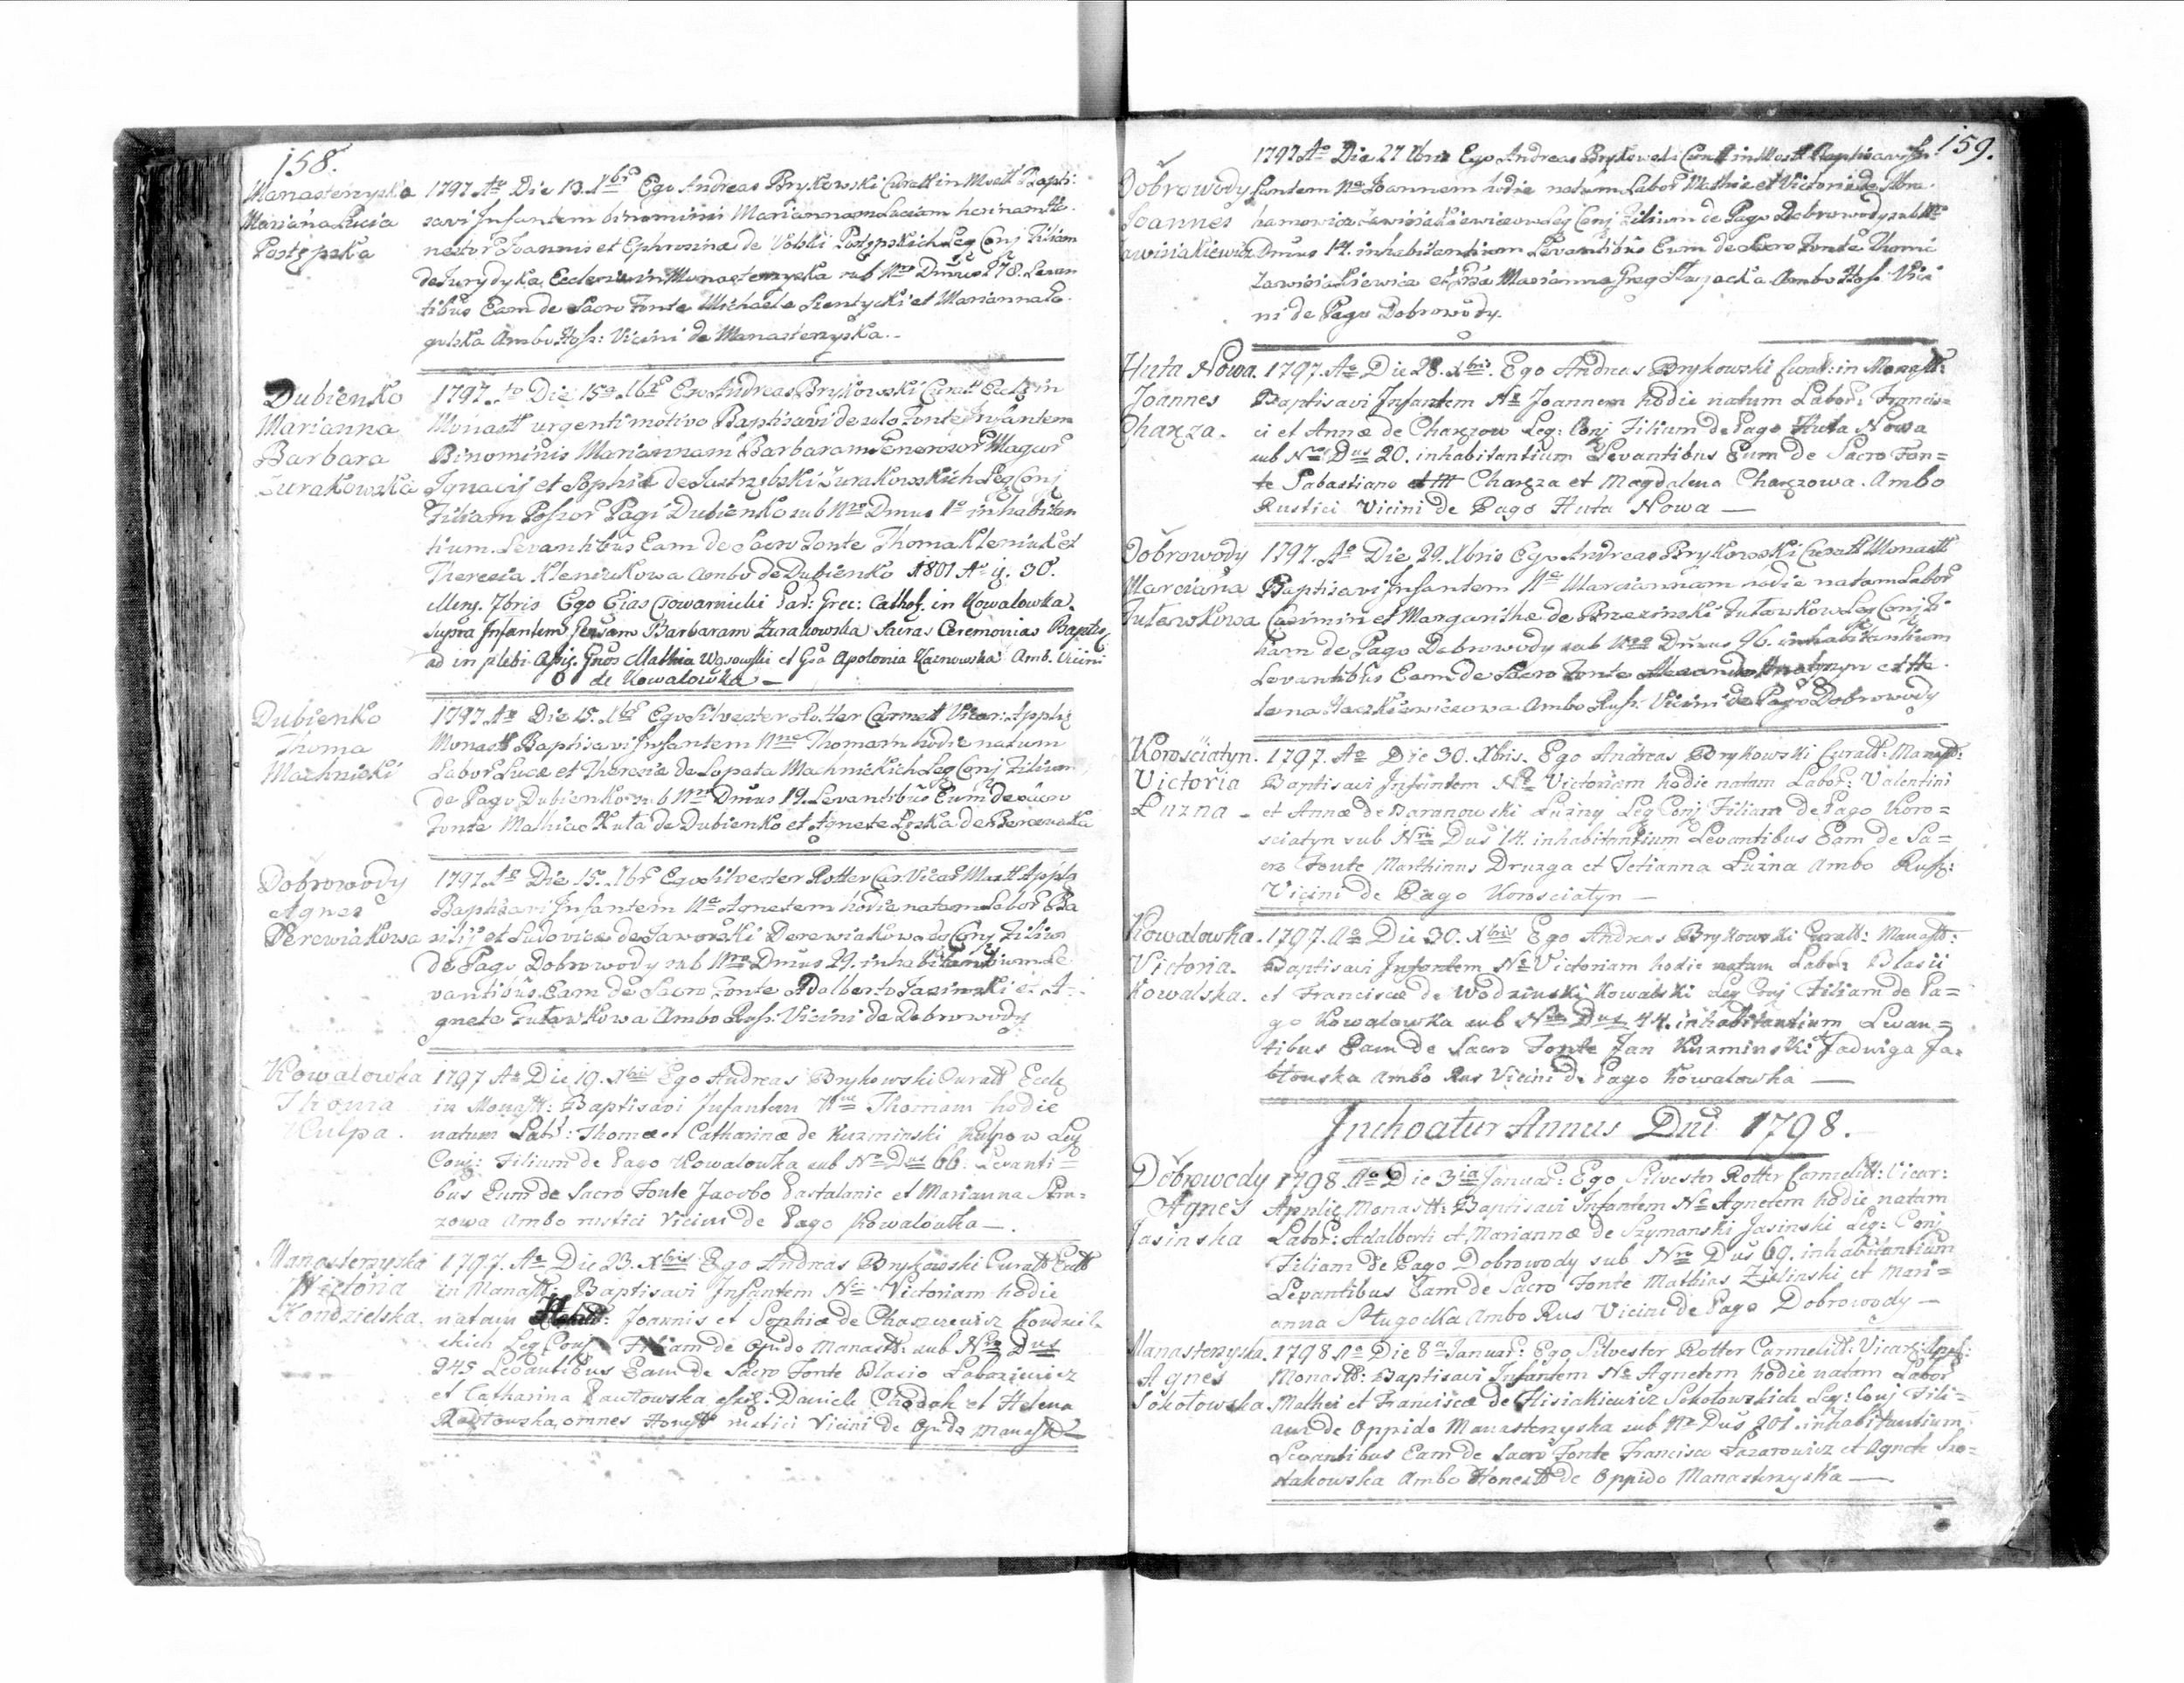 158.
Manasterzyska 1797 Ao Die 13. Xbris Ego Andreas Brykowski Curatt in Mostt Bapti:
Marianna Lucia savi Infantem binominis Mariannam Luciam heri natam Ho:
Postępska nestor Joannis et Ephrosina de Volski Postępskich Leg Conj Filiam
de Jurydyka Ecclesia in Monasterzyska sub Nro Dmus 178. Levan
tibus Eam de Sacro Fonte Michaele Szentycki et Marianna Ro:
gulska Ambo Hosp: Vicini de Manasterzyska.
Dubienko 1797. Ao Die 15a Xbr Ego Andreas Brykowski Curatt Eccle in
Marianna Monastt urgenti motivo Baptisavi de solo Fonte Infantem
Barbara Binominis Mariannam Barbaram Generosor Magnor
Żurakowska Ignacij et Sophia de Jastrzębski Żurakowskich Leg Conj
Filiam Possor Pagi Dubienko sub Nro Dmus 1o inhabitan
tium. Levantibus Eam de Sacro Fonte Thoma Kleniuk et
Theresia Kleniukowa Ambo de Dubienko 1801 Ao ij. 30.
Mens. 7bris Ego Elias Czowarnicki Par: Grec: Cathol. in Kowalowka.
supra Infantem Barbaram Żurakowska Sacras Ceremonias Baptis
ad in plebi Apis. Gnos Mathia Wąsowski et Gsa Apolonia Kaznowska Amb. Vicini
de Kowalowka —
Dubienko 1797 Ao Die 15. Xbr Ego Silvester Rotter Carmett Vicar: Applic
Thoma Monastt Baptisavi Infantem Nne Thomam hodie natum
Machnicki Labor Luca et Theresia de Lopata Machnickich Leg Conj Filium
de Pago Dubienko sub Nro Dmus 19. Levantibus Eum de Sacro
Fonte Mathias Kuta de Dubienko et Agnete Łoska de Berezowka
Dobrowody 1797 Ao Die 15. Xbr Ego Silvester Rotter Car. Vicar Mostt Appla
Agnes Baptisavi Infantem Ne Agnetem hodie natam Labor Ba
Derewiakowa silij et Ludovica de Jaworski Derewiakow Leg Conj Filiam
de Pago Dobrowody sub Nro Dmus 29. inhabitantium Le
vantibus Eam de Sacro Fonte Adalberto Jasinski et A-
gnete Tutawkowa Ambo Russ: Vicini de Dobrowody
Kowalowka 1797 Ao Die 19. Xbris Ego Andreas Brykowski Curatt Eccle
Thoma in Monastt: Baptisavi Infantem Nne Thomam hodie
Kulpa. natum Labr: Thoma et Catharinæ de Kuzminski Kulpow Leg
Conj: Filium de Pago Kowalowka sub No Dus 66: Levanti=
bus Eum de Sacro Fonte Jacobo Pastalanic et Marianna
zowa Ambo rustici Vicini de Pago Kowalowka —.
Manasterzyska 1797. Ao Die 23. Xbris Ego Andreas Brykowski Curatt Eccl
Victoria in Monastt: Baptisavi Infantem Ne Victoriam hodie
Kondzielska. natam Joannis et Sophiæ de Chaszczewicz Kondziel=
skich Leg Conj Filiam de Opido Manastt: sub Nro Dus
245 Levantibus Eam de Sacro Fonte Blasio Łabaziewicz
et Catharina Pawłowska assis: Daniele Chodak et Helena
Pawłowska, omnes Honestt rustici Vicini de Opido Manastt —
159.
1797 Ao Die 27 Xbris Ego Andreas Brykowski Curatt in Mostt Baptisavi In
Dobrowody fantem Ne Joannem hodie natum Labor Mathia et Victoria de Abra:
Joannes hamowicz Zawisiakiewiczow Leg Conj Filium de Pago Dobrowody sub Nro
awisiakiewicz Dmus 14. inhabitantium Levantibus Eum de Sacro Fonte Thoma
Zawisiakiewicz et Marianna Ambo Hosp Vici
ni de Pago Dobrowody.
Huta Nowa. 1797. Ao Die 28. Xbris. Ego Andreas Brykowski Curatt: in Monastt:
Joannes Baptisavi Infantem Ne Joannem hodie natum Labor: Francis=
Charza. ci et Annæ de Charzow Leg: Conj Filium de Pago Huta Nowa
sub Nro Dus 20. inhabitantium Levantibus Eum de Sacro Fon=
te Sabastiano Charza et Magdalena Charzowa. Ambo
Rustici Vicini de Pago Huta Nowa —
Dobrowody 1797. Ao Die 29. Xbris Ego Andreas Brykowski Curatt Monastt
Marcianna Baptisavi Infantem Ne Marciannam hodie natam Labor
Tutawkowa Casimiri et Margarithe de Brzezinski Tutawkow Leg Conj Fi
liam de Pago Dobrowody sub Nro Dmus 96. inhabitantium
Levantibus Eam de Sacro Fonte et He:
lena Haczkiewiczowa Ambo Russ: Vicini de Pago Dobrowody
Korosciatyn. 1797. Ao Die 30. Xbris. Ego Andreas Brykowski Curatt: Manastt:
Victoria Baptisavi Infantem Ne Victoriam hodie natam Labor: Valentini
Luzna - et Annæ de Baranowski Luzny Leg Conj Filiam de Pago Koro=
sciatyn sub Nro Dus 14. inhabitantium Levantibus Eam de Sa=
cro Fonte Marthinus Druzga et Tetianna Luzna Ambo Russ:
Vicini de Pago Korosciatyn —
Kowalowka. 1797. Ao Die 30. Xbris Ego Andreas Brykowski Curatt: Manastt:
Victoria. Baptisavi Infantem Ne Victoriam hodie natam Labor Blasii
Kowalska. et Franciscæ de Wodzinski Kowalski Leg Conj Filiam de Pa=
go Kowalowka sub Nro Dus 44. inhabitantium Levan=
tibus Eam de Sacro Fonte Jan Kuzminski et Jadwiga Ja=
błonska Ambo Rus Vicini de Pago Kowalowka —
Inchoatur Annus Dni 1798.
Dobrowody 1798 Ao Die 3ia Januar: Ego Silvester Rotter Carmelitt: Vicar:
Agnes Applic Monastt: Baptisavi Infantem Ne Agnetem hodie natam
Jasinska Labor: Adalberti et Mariannæ de Szymanski Jasinski Leg: Conj
Filiam de Pago Dobrowody sub Nro Dus 69. inhabitantium
Levantibus Eam de Sacro Fonte Mathias Zielinski et Mari=
anna Sługocka Ambo Rus Vicini de Pago Dobrowody —
Manasterzyska. 1798 Ao Die 8a Januar: Ego Silvester Rotter Carmelitt: Vicar: Appl:
Agnes Monastt: Baptisavi Infantem Ne Agnetem hodie natam Labor
Sokołowska Mathei et Franciscæ de Hisiakiewicz Sokołowskich Leg: Conj Fili=
am de Oppido Manasterzyska sub No Dus 201. inhabitantium.
Levantibus Eam de Sacro Fonte Francisco Łazarowicz et Agnete Szo=
stakowska Ambo Honestt de Oppido Manasterzyska —.